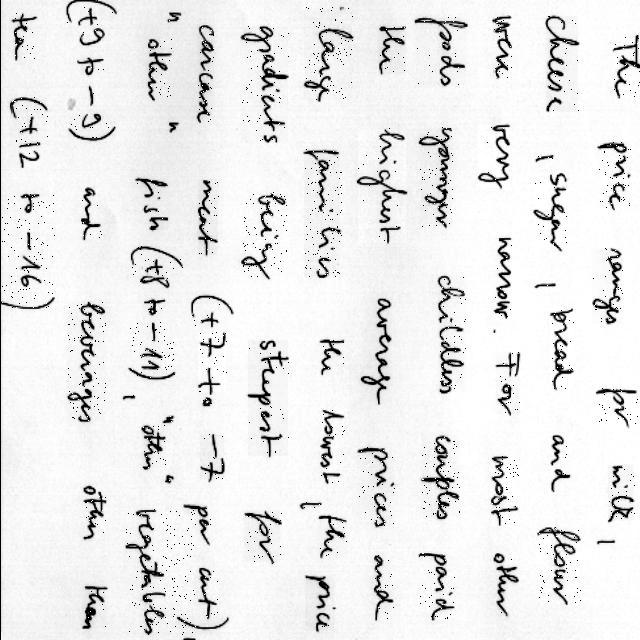 The price ranges for milk,
cheese, sugar, bread and flour
were very narrow. For most other
foods younger childless couples paid
the highest average prices and
large families the lowest, the price
gradients being steepest for
carcase meat (+7 to -7 per cent),
"other" fish (+8 to -11), "other" vegetables
(+9 to -9) and beverages other than
tea (+12 to -16)